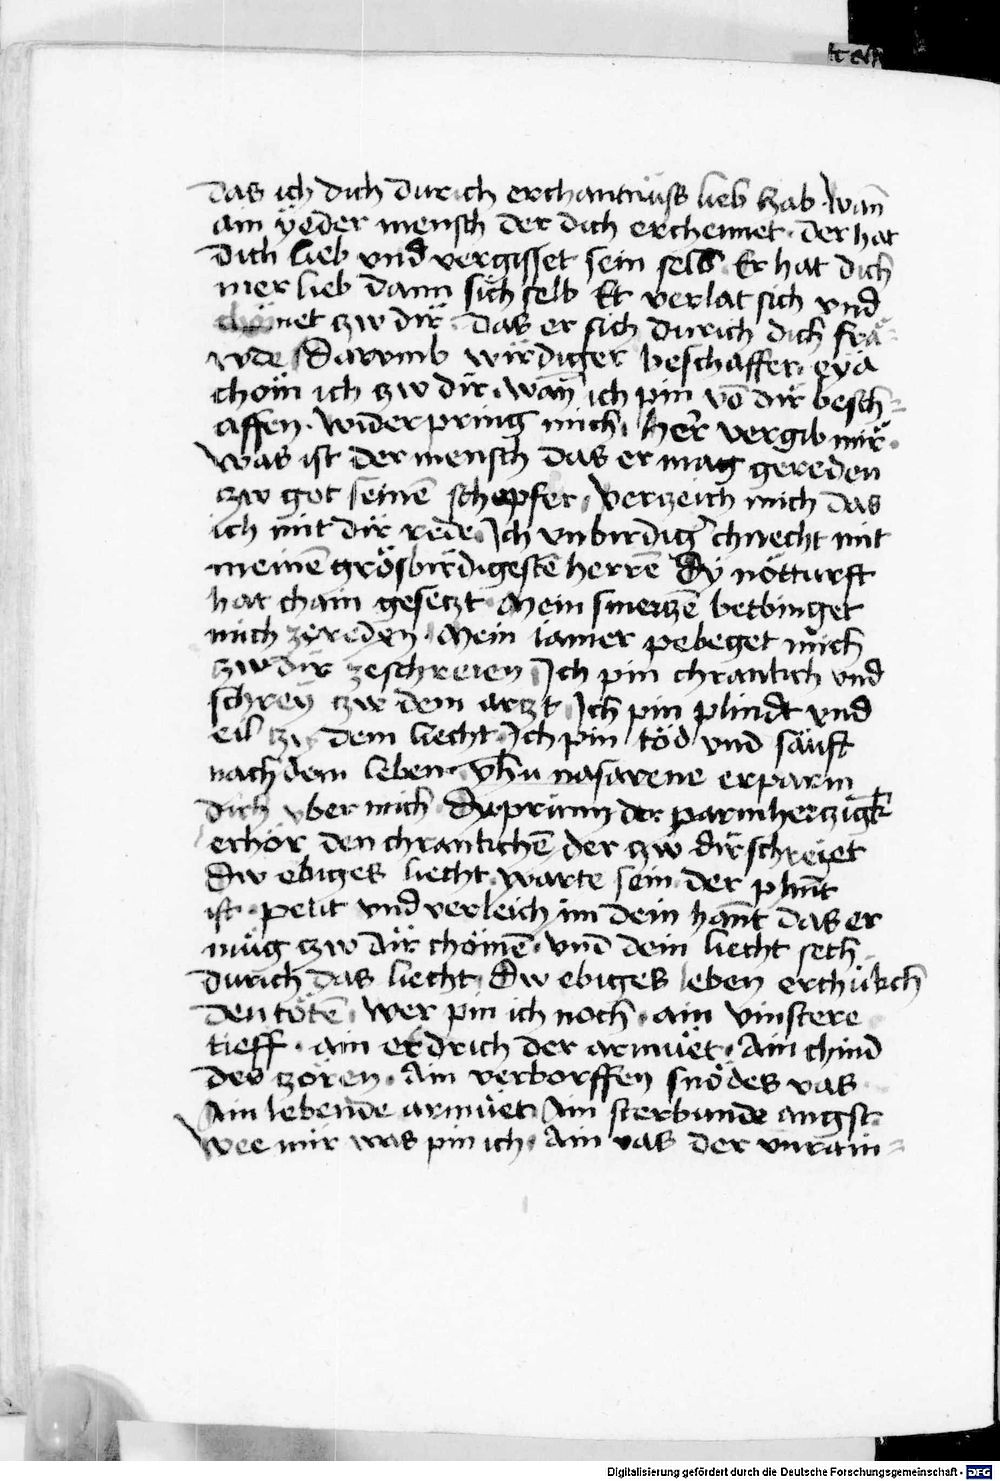 das ich dich durich erchantnüss lieb hab wan̄
ain ÿeder mensch der dich erchennet · der hat
dich lieb vnd vergisset sein selb · Er hat dich
mer lieb dann sich selb Er verlat sich vnd
chömet zw dir · das er sich durich dich frä-
wde Darumb wirdiger beschaffer · eya
chöm ich zw dir · wan̄ ich pin vō dir besch-
affen · widerpring mich · her̄ vergib mir ·
Was ist der mensch das er mag gereden
zw got seinē schepfer · Verzeich mich das
ich mit dir rede Ich vnbirdig̓ chnecht mit
meinē grösbirdigestē herrē Dy nötturft
hat chain gesetzt · Mein smertzē betbinget
mich zereden · Mein iamer pebeget mich
zw dir zeschreien Ich pin chrantich vnd
schreÿ zw dem artzt Ich pin plindt vnd
eil zw dem liecht · Ich pin töd vnd säuft
nach dem leben · yh̄u nasarene erparm
dich vber mich Dw prunn der parmhertzigk̄
erhör den chrantichē der zw dir schreiet
Dw ebiges liecht warte sein der plint
ist · petit vnd verleich im dein han̄t das er
müg zw dir chömē · vnd dein liecht sech
durich das liecht Dw ebiges leben erchükch
den tötē · Wer pin ich noch · ain vinstere
tieff · ain erdrich der armüet · Ain chind
des zoren · Ain verborffen snödes vas
Ain lebende armüet Ain sterbunde angst
Wee mir was pin ich · Ain vas der vnrain-
Digitalisierung gefördert durch die Deutsche Forschungsgemeinschaft - DFG